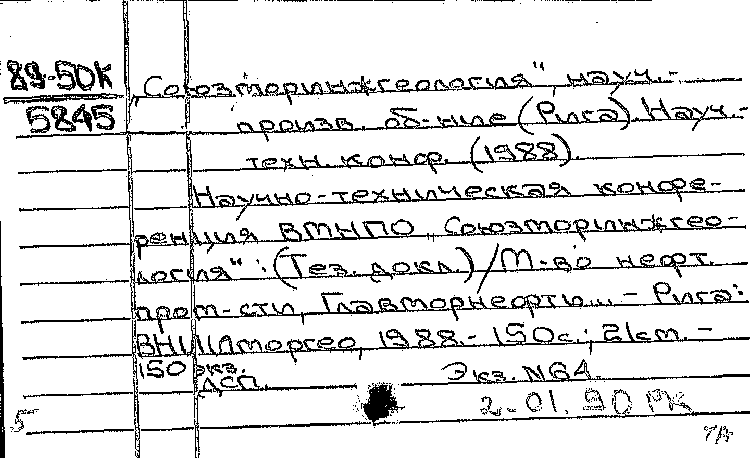 89-50К
5845
„Союзморинжгеология", науч.-
произв. об-ние (Рига). Науч.-
техн. конф. (1988).
Научно-техническая конфе-
ренция ВМНПО „Союзморинжгео-
логия": (Тез. докл.) / М-во нефт.
пром-сти, Главморнефть... - Рига:
ВНИИморгео, 1988. - 150 с.; 21 см. -
150 экз.
ДСП. Экз. N64.
2-01.90 РК
5